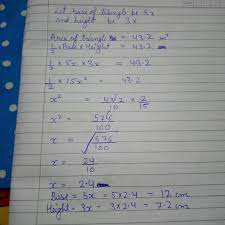 Let base of triangle be 5x
and height be 3x
Area of triangle = 43.2 m²
1/2 × Base × Height = 43.2
1/2 × 5x × 3x = 43.2
1/2 × 15x² = 43.2
x² = 432/10 × 2/15
x² = 576/100
x = √576/100
x = 24/10
x = 2.4
Base = 5x = 5×2.4 = 12 cm
Height = 3x = 3×2.4 = 7.2 cm